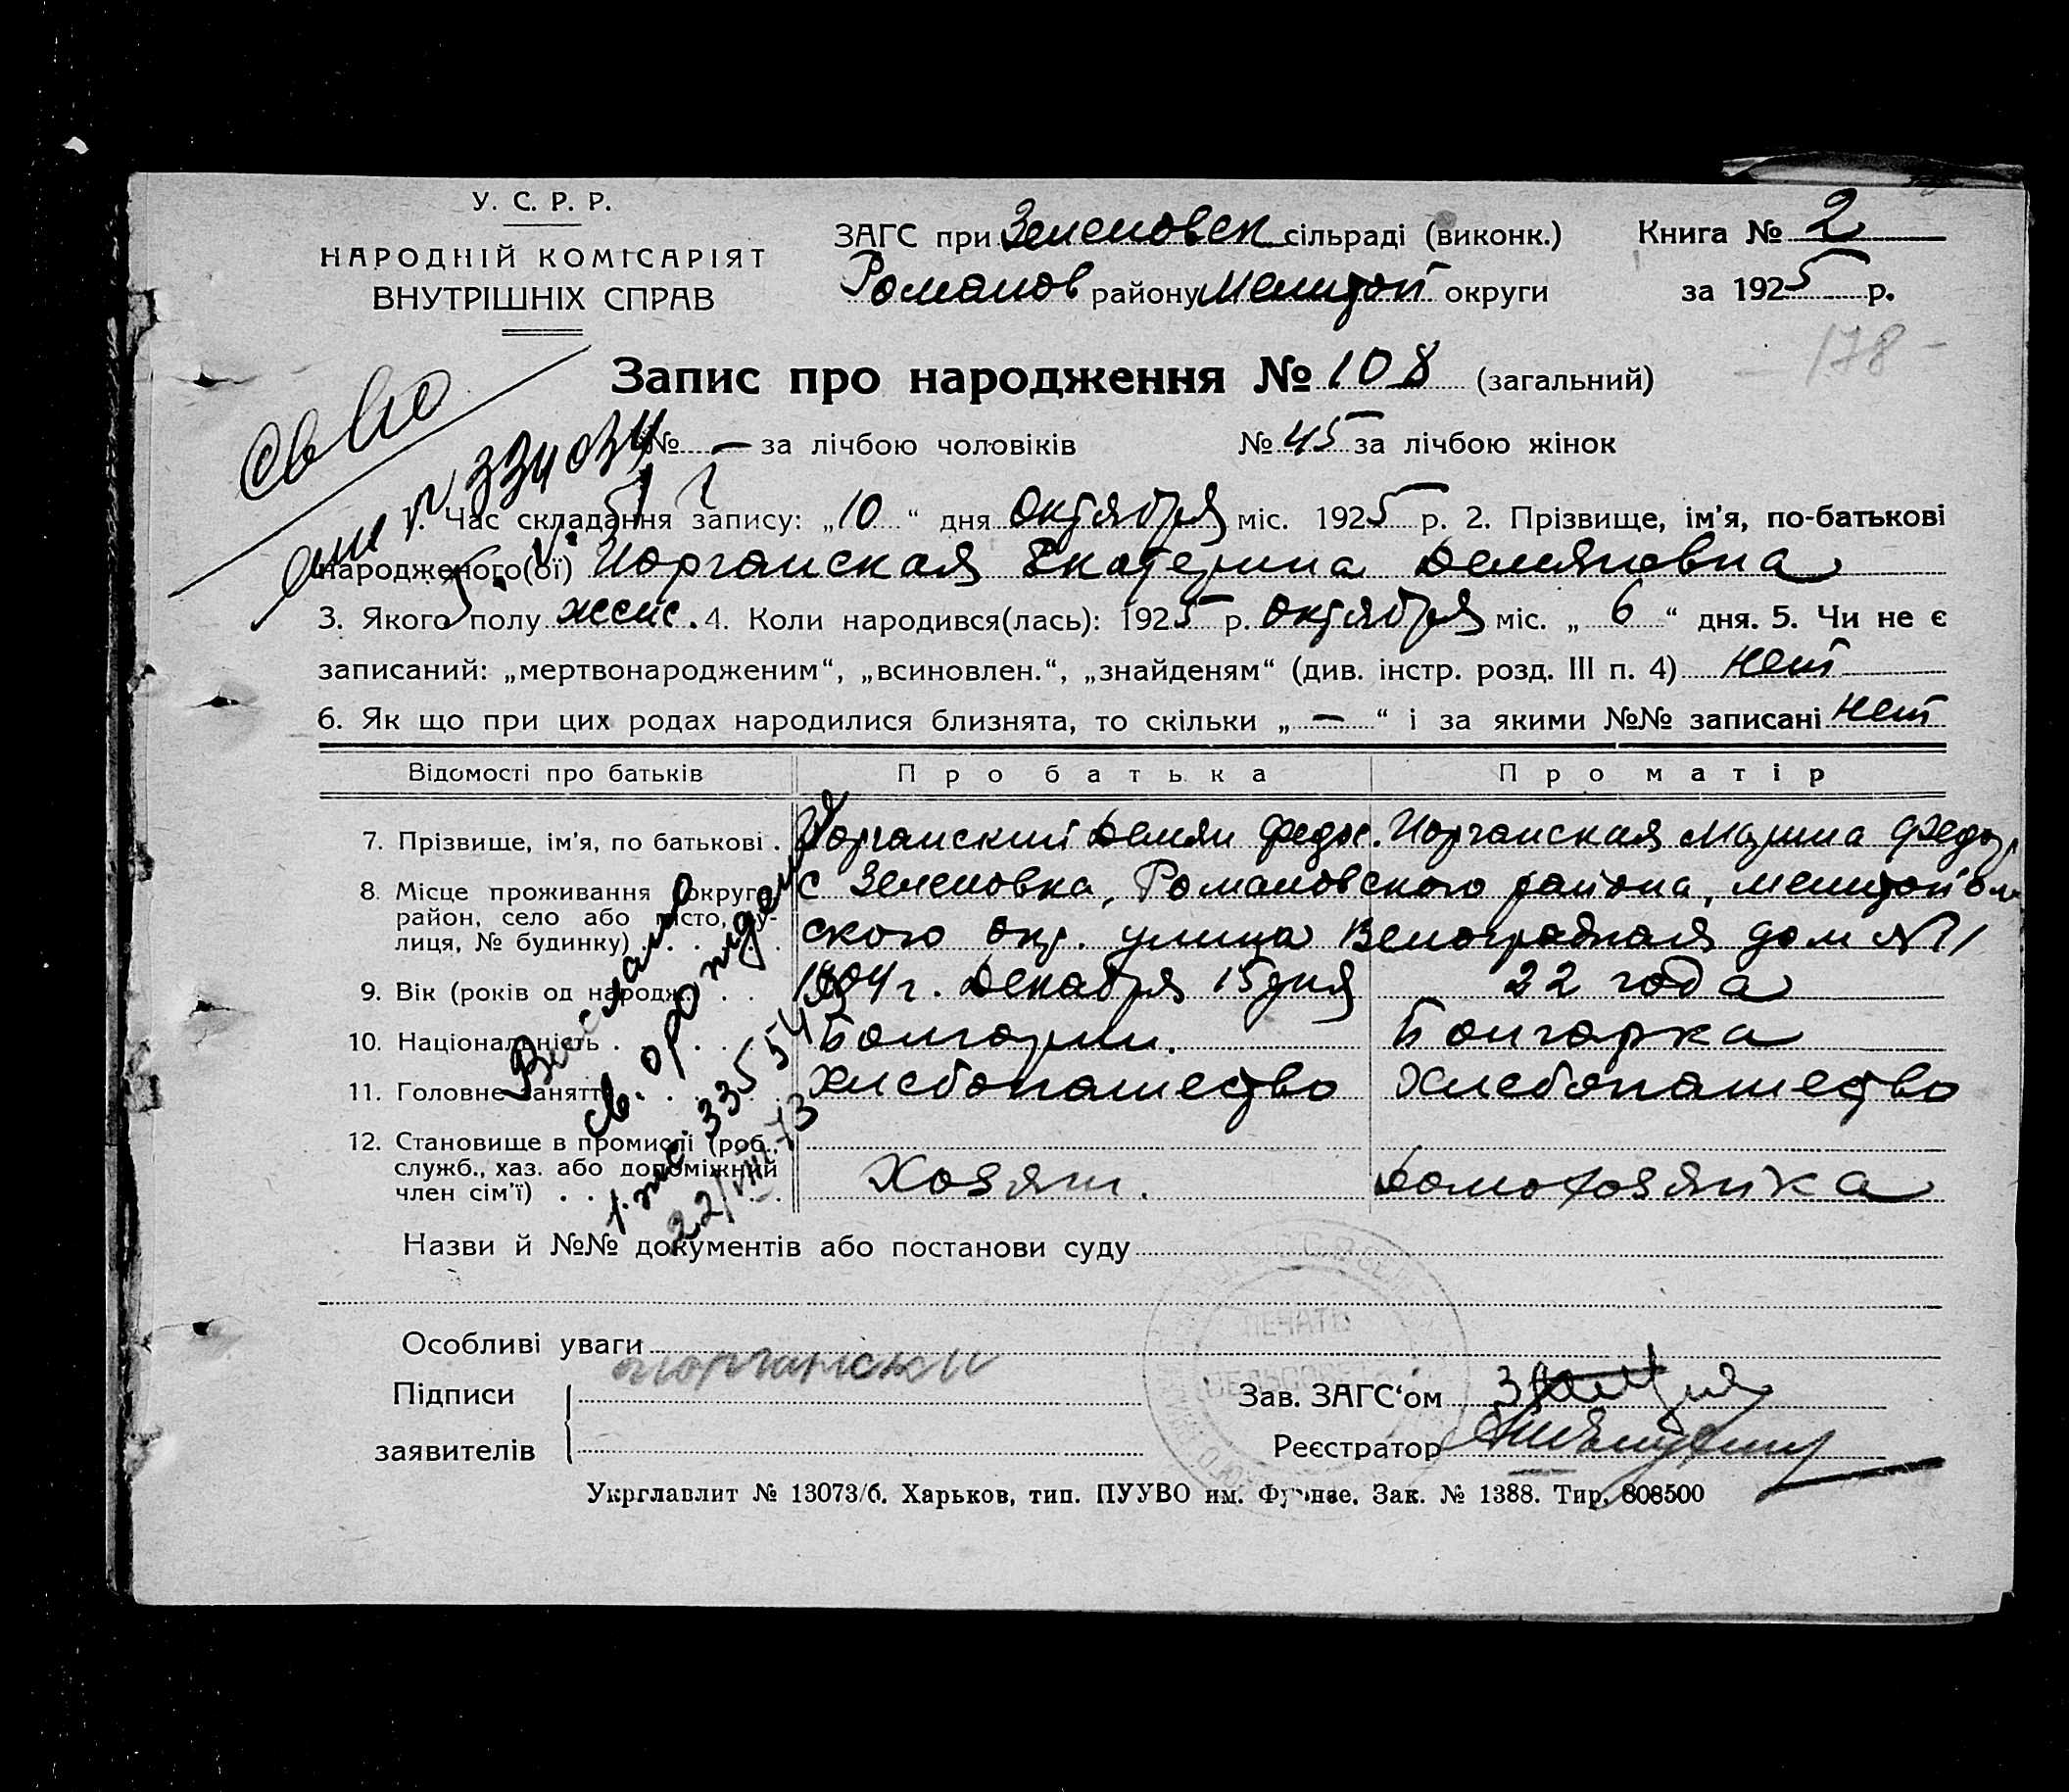 У. С. Р. Р.
НАРОДНІЙ КОМІСАРІЯТ
ВНУТРІШНІХ СПРАВ
ЗАГС при Зеленовск сільраді (виконк.)
Романов району Мелитоп округи
Книга № 2
за 1925 р.
178
Запис про народження № 108 (загальний)
№ — за лічбою чоловіків № 45 за лічбою жінок
334034
1. Час складання запису: „10“ дня октября міс. 1925 р. 2. Прізвище, ім’я, по-батькові
народженого(ої) Иорганская Екатерина Демяновна
3. Якого полу женс. 4. Коли народився(лась): 1925 р. октября міс. „6“ дня. 5. Чи не є
записаний: „мертвонародженим“, „всиновлен.“, „знайденям“ (див. інстр. розд. III п. 4) нет
6. Як що при цих родах народилися близнята, то скільки „—“ і за якими №№ записані нет
Відомості про батьків Про батька Про матір
7. Прізвище, ім’я, по батькові . Иорганский Демян Федос. Иорганская Марина Федор.
8. Місце проживання округа,
район, село або місто, ву-
лиця, № будинку) . . . .
с Зеленовка, Романовского района, мелитополь
ского окр. улица Веноградная дом №1
9. Вік (років од народж. . . . 1904 г. Декабря 15 дня 22 года
10. Національність . . . . Болгарин. Болгарка
11. Головне заняття . . . . Хлебопашество Хлебопашество
12. Становище в промислі (роб.,
служб., хаз. або допоміжний
член сім’ї) . . . . Хозяин. Домохозяйка
Выслано
св. о рождении
335
22/VIII-73
Назви й №№ документів або постанови суду
Особливі уваги
Підписи
заявителів
Зав. ЗАГС‘ом
Реєстратор
ПЕЧАТЬ
Укрглавлит № 13073/б. Харьков, тип. ПУУВО им. Фрунзе. Зак. № 1388. Тир. 808500